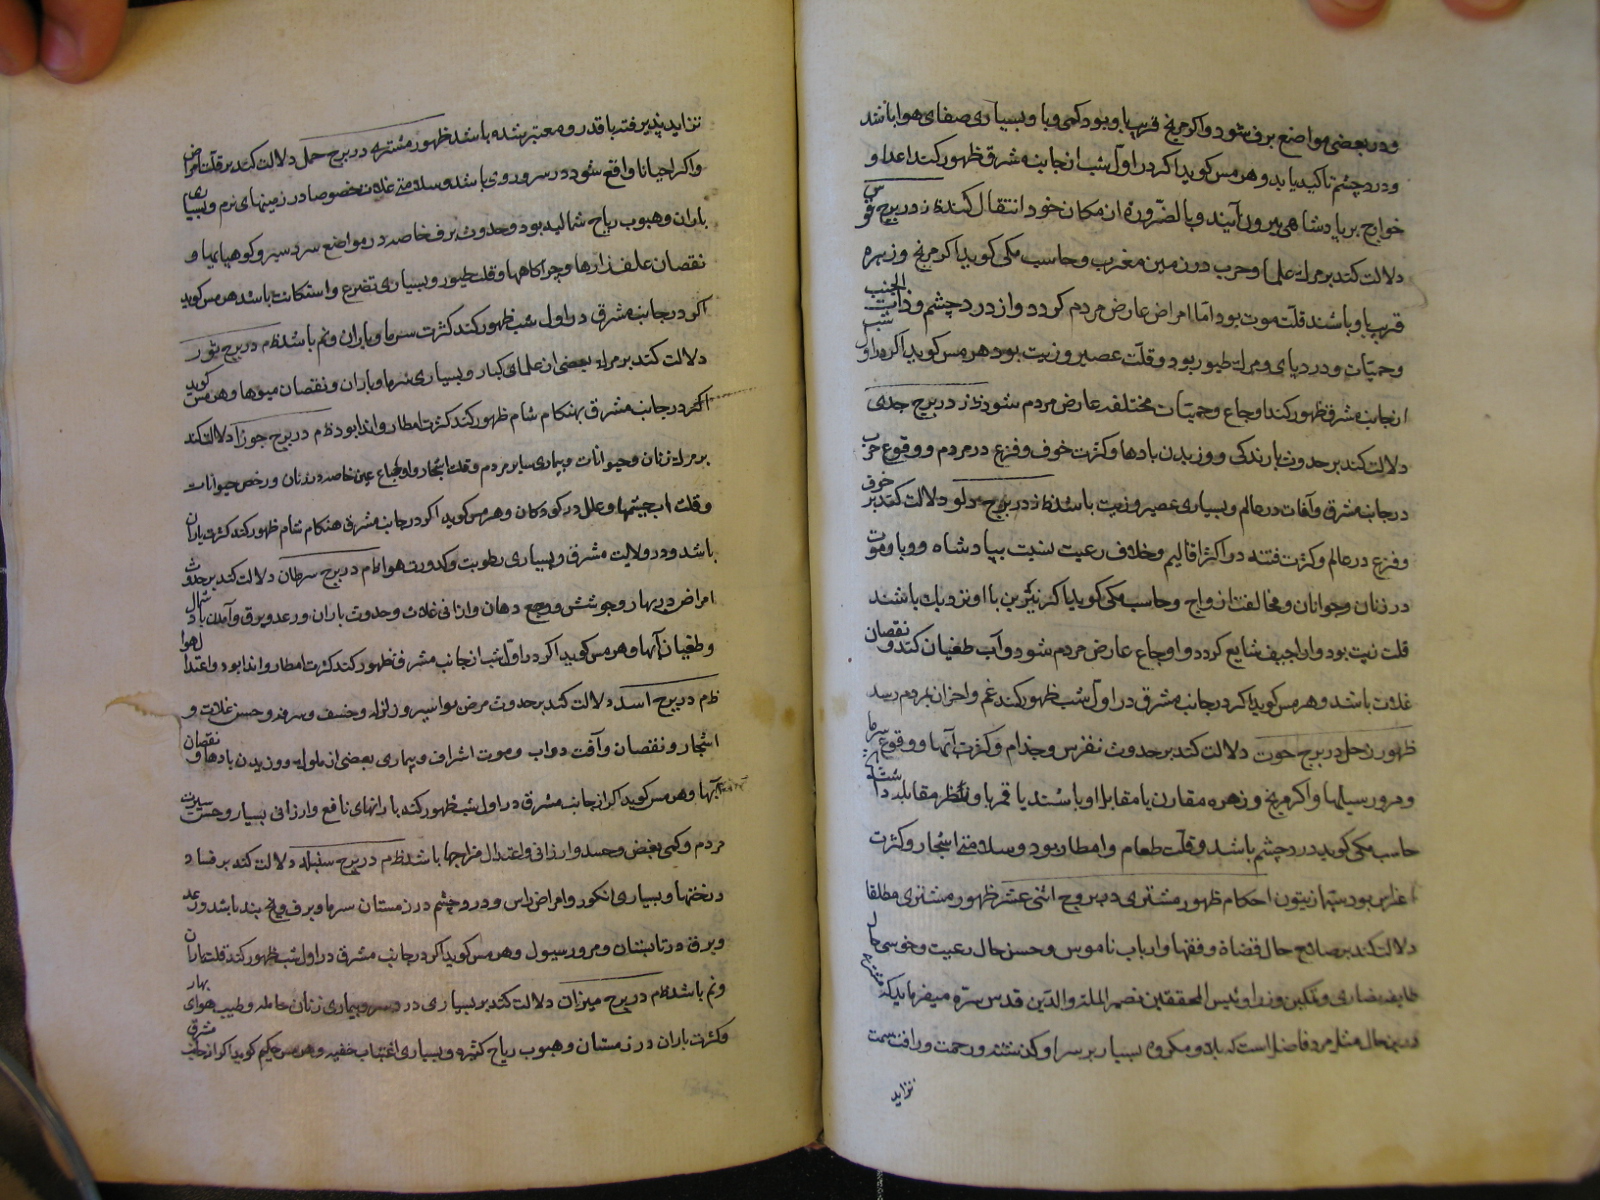 ودر بعضی مواضع برف شود و اکر مریخ قریب باو بود کمی وبا و بسیاری صفای هوا باشد
ودرد چشم تاکید یابد و هرمس کوید اکر در اول شب از جانب مشرق ظهور کند اعدا و
خوارج بر پادشاهی بیرون آیند و بالضروره از مکان خود انتقال کند ظ‍ در برج قوس
دلالت کند بر مرک علما و حرب در زمین مغرب و حاسب مکی کوید اکر مریخ و زهره
قریب باو باشند قلت موت بود اما امراض عارض مردم کردد و از درد چشم و ذات الجنب
وحمیات و در دیای و مرک طیور بود و قلت عصیر و زیت بود هرمس کوید اکر در اول شب
از جانب مشرق ظهور کند اوجاع و حمیات مختلفه عارض مردم شود در برج جدی
دلالت کند بر حدوث بارندکی و وزیدن بادها و کثرت خوف و فزع در مردم و وقوع حرب
در جانب مشرق و آفات در عالم و بسیاری عصیر و زیت باشد در برج دلو دلالت کند بر خوف
وفزع در عالم و کثرت فتنه در اکثر اقالیم و خلاف رعیت نسبت بپادشاه و وبا و موت
در زنان و جوانان و مخالفت ازواج و حاسب مکی کوید اکر نیرین با او نزدیک باشند
قلت زیت بود و اراجیف شایع کردد و اوجاع عارض مردم شود و آب طغیان کند و نقصان
غلات باشد و هرمس کوید اکر در جانب مشرق در اول شب ظهور کند غم و احزان بمردم رسد
ظهور زحل در برج حوت دلالت کند بر حدوث نقرس و جذام و کثرت آبها و وقوع سرما
و مرور سیلها و اکر مریخ و زهره مقارن یا مقابل او باشند یا قمر باو نظر مقابله داشته
حاسب مکی کوید درد چشم باشد و قلت طعام و امطار بود و سلامتی اشجار و کثرت
بود سیما زیتون احکام ظهور مشتری در بروج اثنی عشر ظهور مشتری مطلقا
دلالت کند بر صالح حال قضاة و فقها و ارباب ناموس و حسن حال رعیت و خوشی حال
طایفه نصاری و تمکین وزرا و رئیس المحققین نصیر الملة والدین قدس سره میفرماید که مشتری
درین حال مثل مرد فاضل است که بلا و مکروه بسیار بر سر او کذشته و رحمت و رافت سمت
تزاید
تزاید پذیرفته با قدر و معتبر شده باشد ظهور مشتری در برج حمل دلالت کند بر قلت امراض
و اکر احیانا واقع شود در سر و روی باشد و سلامتی غلات خصوصا در زمینهای نرم و بسیاری
باران و هبوب ریاح شمالیه بود و حدوث برف خاصه در مواضع سردسیر و کوهپایها و
نقصان علفزارها و چراکاهها و قلت طیور و بسیاری تضرع و استکانت باشد هرمس کوید
اکر در جانب مشرق در اول شب ظهور کند کثرت سرما و باران و نم باشد ظ‍م در برج ثور
دلالت کند بر مرک بعضی از علمای کبار و بسیاری سرما و باران و نقصان میوها و هرمس کوید
اکر در جانب مشرق بهنکام شام ظهور کند کثرت امطار و اندا بود ظ‍م در برج جوزا دلالت کند
بر مرک زنان و حیوانات و بیماری سایر مردم و قلت اشجار و اوجاع عین خاصه در زنان و رخص حیوانات
و قلت آب چشمها و علل در کودکان و هرمس کوید اکر در جانب مشرق هنکام شام ظهور کند کثرت باران
باشد و در ولایت مشرق و بسیاری رطوبت و کدورت هوا ظ‍م در برج سرطان دلالت کند بر حدوث
امراض در بهار و جوشش و وجع دهان و ارزانی غلات و حدوث باران و رعد و برق و آمدن باد شمال
و طغیان آبها و هرمس کوید اکر در اول شب از جانب مشرق ظهور کند کثرت امطار و اندا بود و اعتدال هوا
ظ‍م در برج اسد دلالت کند بر حدوث مرض بواسیر و زلزله و خسف و سرفه و حسن غلات و
اشجار و نقصان و آفت دواب و موت اشراف و بیماری بعضی از ملوک و وزیدن بادها و نقصان
آبها و هرمس کوید اکر از جانب مشرق در اول شب ظهور کند بارانهای نافع و ارزانی بسیار و حسن سیرت
مردم و کمی بغض و حسد و ارزانی و اعتدال مزاجها باشد ظ‍م در برج سنبله دلالت کند بر فساد
درختها و بسیاری انکور و امراض راس و درد چشم در زمستان سرما و برف و یخ بند باشد و رعد
و برق در تابستان و مرور سیول و هرمس کوید اکر در جانب مشرق در اول شب ظهور کند قلت باران
و نم باشد ظ‍م در برج میزان دلالت کند بر بسیاری درد سر و بیماری زنان حامله و طیب هوای بهار
و کثرت باران در زمستان و هبوب ریاح کثیره و بسیاری خفیه و هرمس حکیم کوید اکر از جانب مشرق